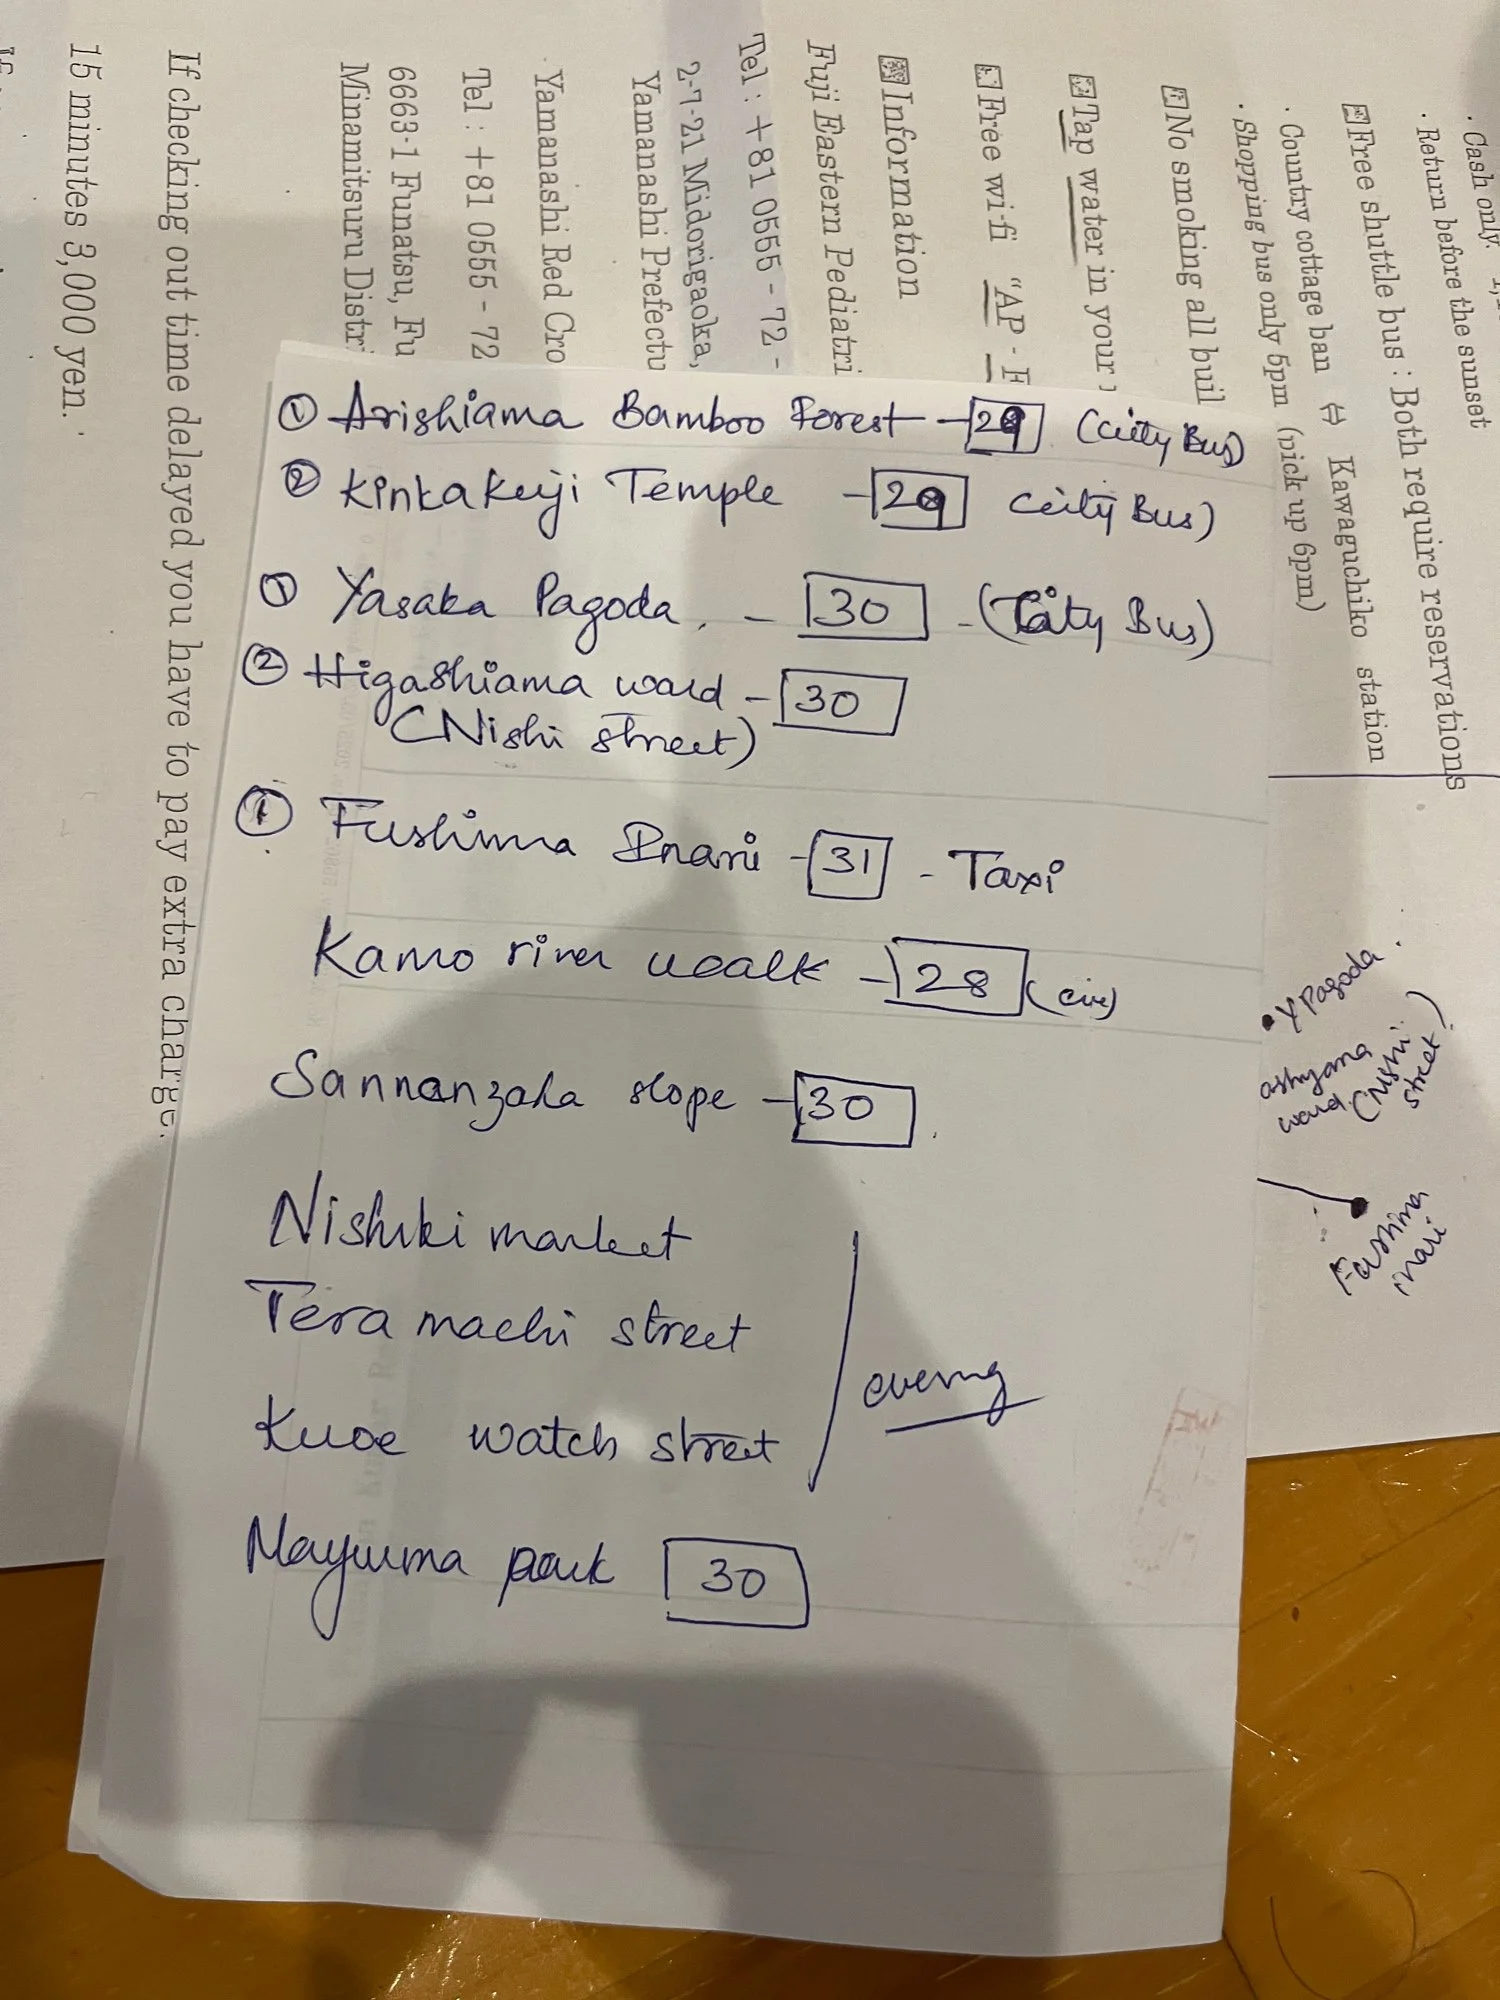 ① Arishiama Bamboo Forest - 29 (City Bus)
② Kinkakuji Temple - 29 City Bus)
① Yasaka Pagoda. - 30 - (City Bus)
② Higashiama ward - 30
(Nishi street)
① Fushima Inari - 31 - Taxi
Kamo river walk - 28 (eve)
Sannanzaka slope - 30
Nishiki market
Tera machi street
evening
watch street
park 30
· Cash only.
· Return before the sunset
Free shuttle bus : Both require reservations
· Country cottage ban ⇔ Kawaguchiko station
· Shopping bus only 5pm (pick up 6pm)
No smoking all buil
Tap water in your
Free wi-fi "AP - F
Information
Fuji Eastern Pediatri
Tel : +81 0555 - 72 -
2-7-21 Midorigaoka,
Yamanashi Prefectu
Yamanashi Red Cro
Tel : +81 0555 - 72
6663-1 Funatsu, Fu
Minamitsuru Distri
If checking out time delayed you have to pay extra charge.
15 minutes 3,000 yen.
Y Pagoda
ashyama
ward (Nishi
street)
Fashima
inari